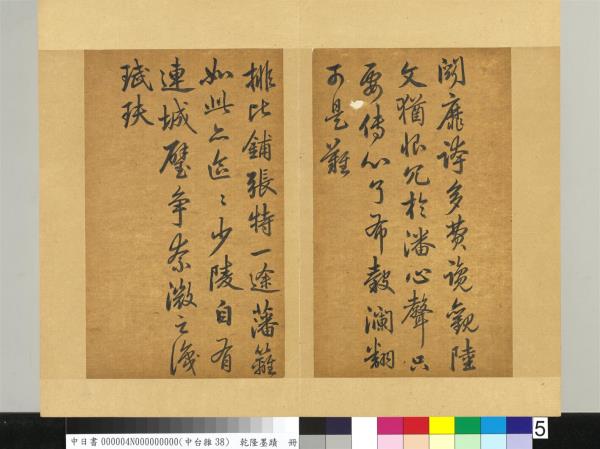 鬪靡誇多費覽觀陸
文猶恨冗於潘心聲只
要傳心了布穀瀾翻
可是難
排比鋪張特一途藩籬
如此亦區〻少陵自有
連城璧爭奈微之識
珷玞
中日書000004N000000000(中台雜38) 乾隆墨蹟 冊
5